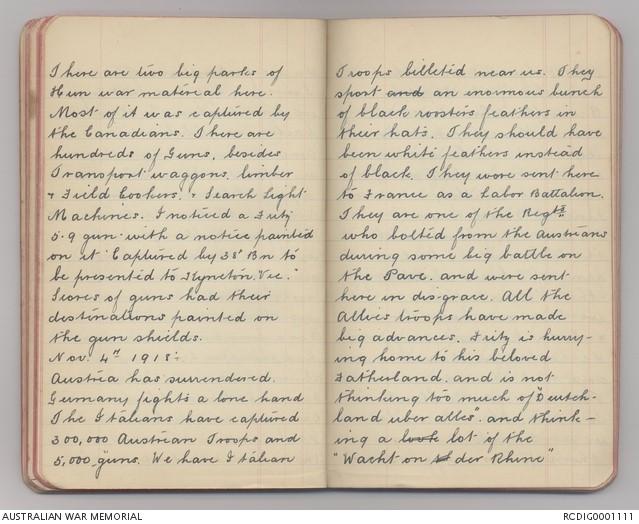 There are two big parks of
Hun war material here.
Most of it was captured by
the Canadians. There are
hundreds of Guns, besides
Transport waggons, limber
& Field Cookers, & Search Light
Machines. I noticed a Fritz
5.9 gun with a notice painted
on it "Captured by 38th Bn to
be presented to Kyneton. Vic."
Scores of guns had their
destinations painted on
the gun shields.
Nov. 4th 1918:
Austria has surrendered.
Germany fights a lone hand
The Italians have captured
300,000 Austrian Troops and
5,000 guns. We have Italian
Troops billetid near us. They
sport and an enormous bunch
of black roosters feathers in
their hats. They should have
been white feathers instead
of black. They were sent here
to France as a Labor Battalion.
They are one of the Regts
who bolted from the Austrians
during some big battle on
the Pave. and were sent
here in disgrace. All the
Allies troops have made
big advances. Fritz is hurry-
ing home to his beloved
Fatherland. and is not
thinking too much of "Deutch-
land uber alles". and think-
ing a look lot of the
"Wacht on der Rhine"
AUSTRALIAN WAR MEMORIAL
RCDIG0001111